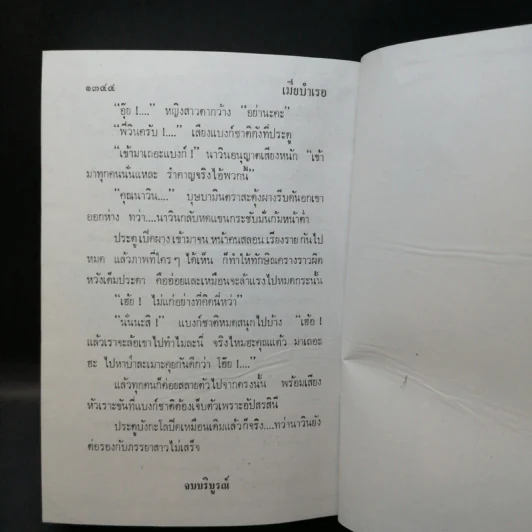 ๑๓๔๔ เมียบำเรอ
“อุ๊ย !....” หญิงสาวตากว้าง “อย่านะคะ”
“พี่วินครับ !....” เสียงแบงก์ชาติดังที่ประตู
“เข้ามาเถอะแบงก์ !” นาวินอนุญาตเสียงหนัก “เข้า
มาทุกคนนั่นแหละ รำคาญจริงไอ้พวกนี้”
“คุณนาวิน....” บุษบามินตราสะดุ้งผางรีบดันอกเขา
ออกห่าง ทว่า....นาวินกลับหดแขนกระชับมั่นก้มหน้าต่ำ
ประตูเปิดผางเข้ามาจนหน้าคนสลอนเรียงรายกันไป
หมด แล้วภาพที่ใครๆ ได้เห็น ก็ทำให้ทักษิณครางราวผิด
หวังเต็มประดา คืออ่อยและเหมือนจะล้าแรงไปหมดกระนั้น
“เฮ้ย ! ไม่แก่อย่างที่คิดนี่หว่า”
“นั่นนะสิ !” แบงก์ชาติหมดสนุกไปบ้าง “เฮ้อ !
แล้วเราจะล้อเขาไปทำไมละนี่ จริงไหมฮะคุณแต้ว มาเถอะ
ฮะ ไปหาบ๋ำละเมาะคุยกันดีกว่า โอ๊ย !....”
แล้วทุกคนก็ค่อยสลายตัวไปจากตรงนั้น พร้อมเสียง
หัวเราะขันที่แบงก์ชาติต้องเจ็บตัวเพราะอัปสรสินี
ประตูบังกะโลปิดเหมือนเดิมแล้วก็จริง....ทว่านาวินยัง
ต่อรองกับภรรยาสาวไม่เสร็จ
จบบริบูรณ์